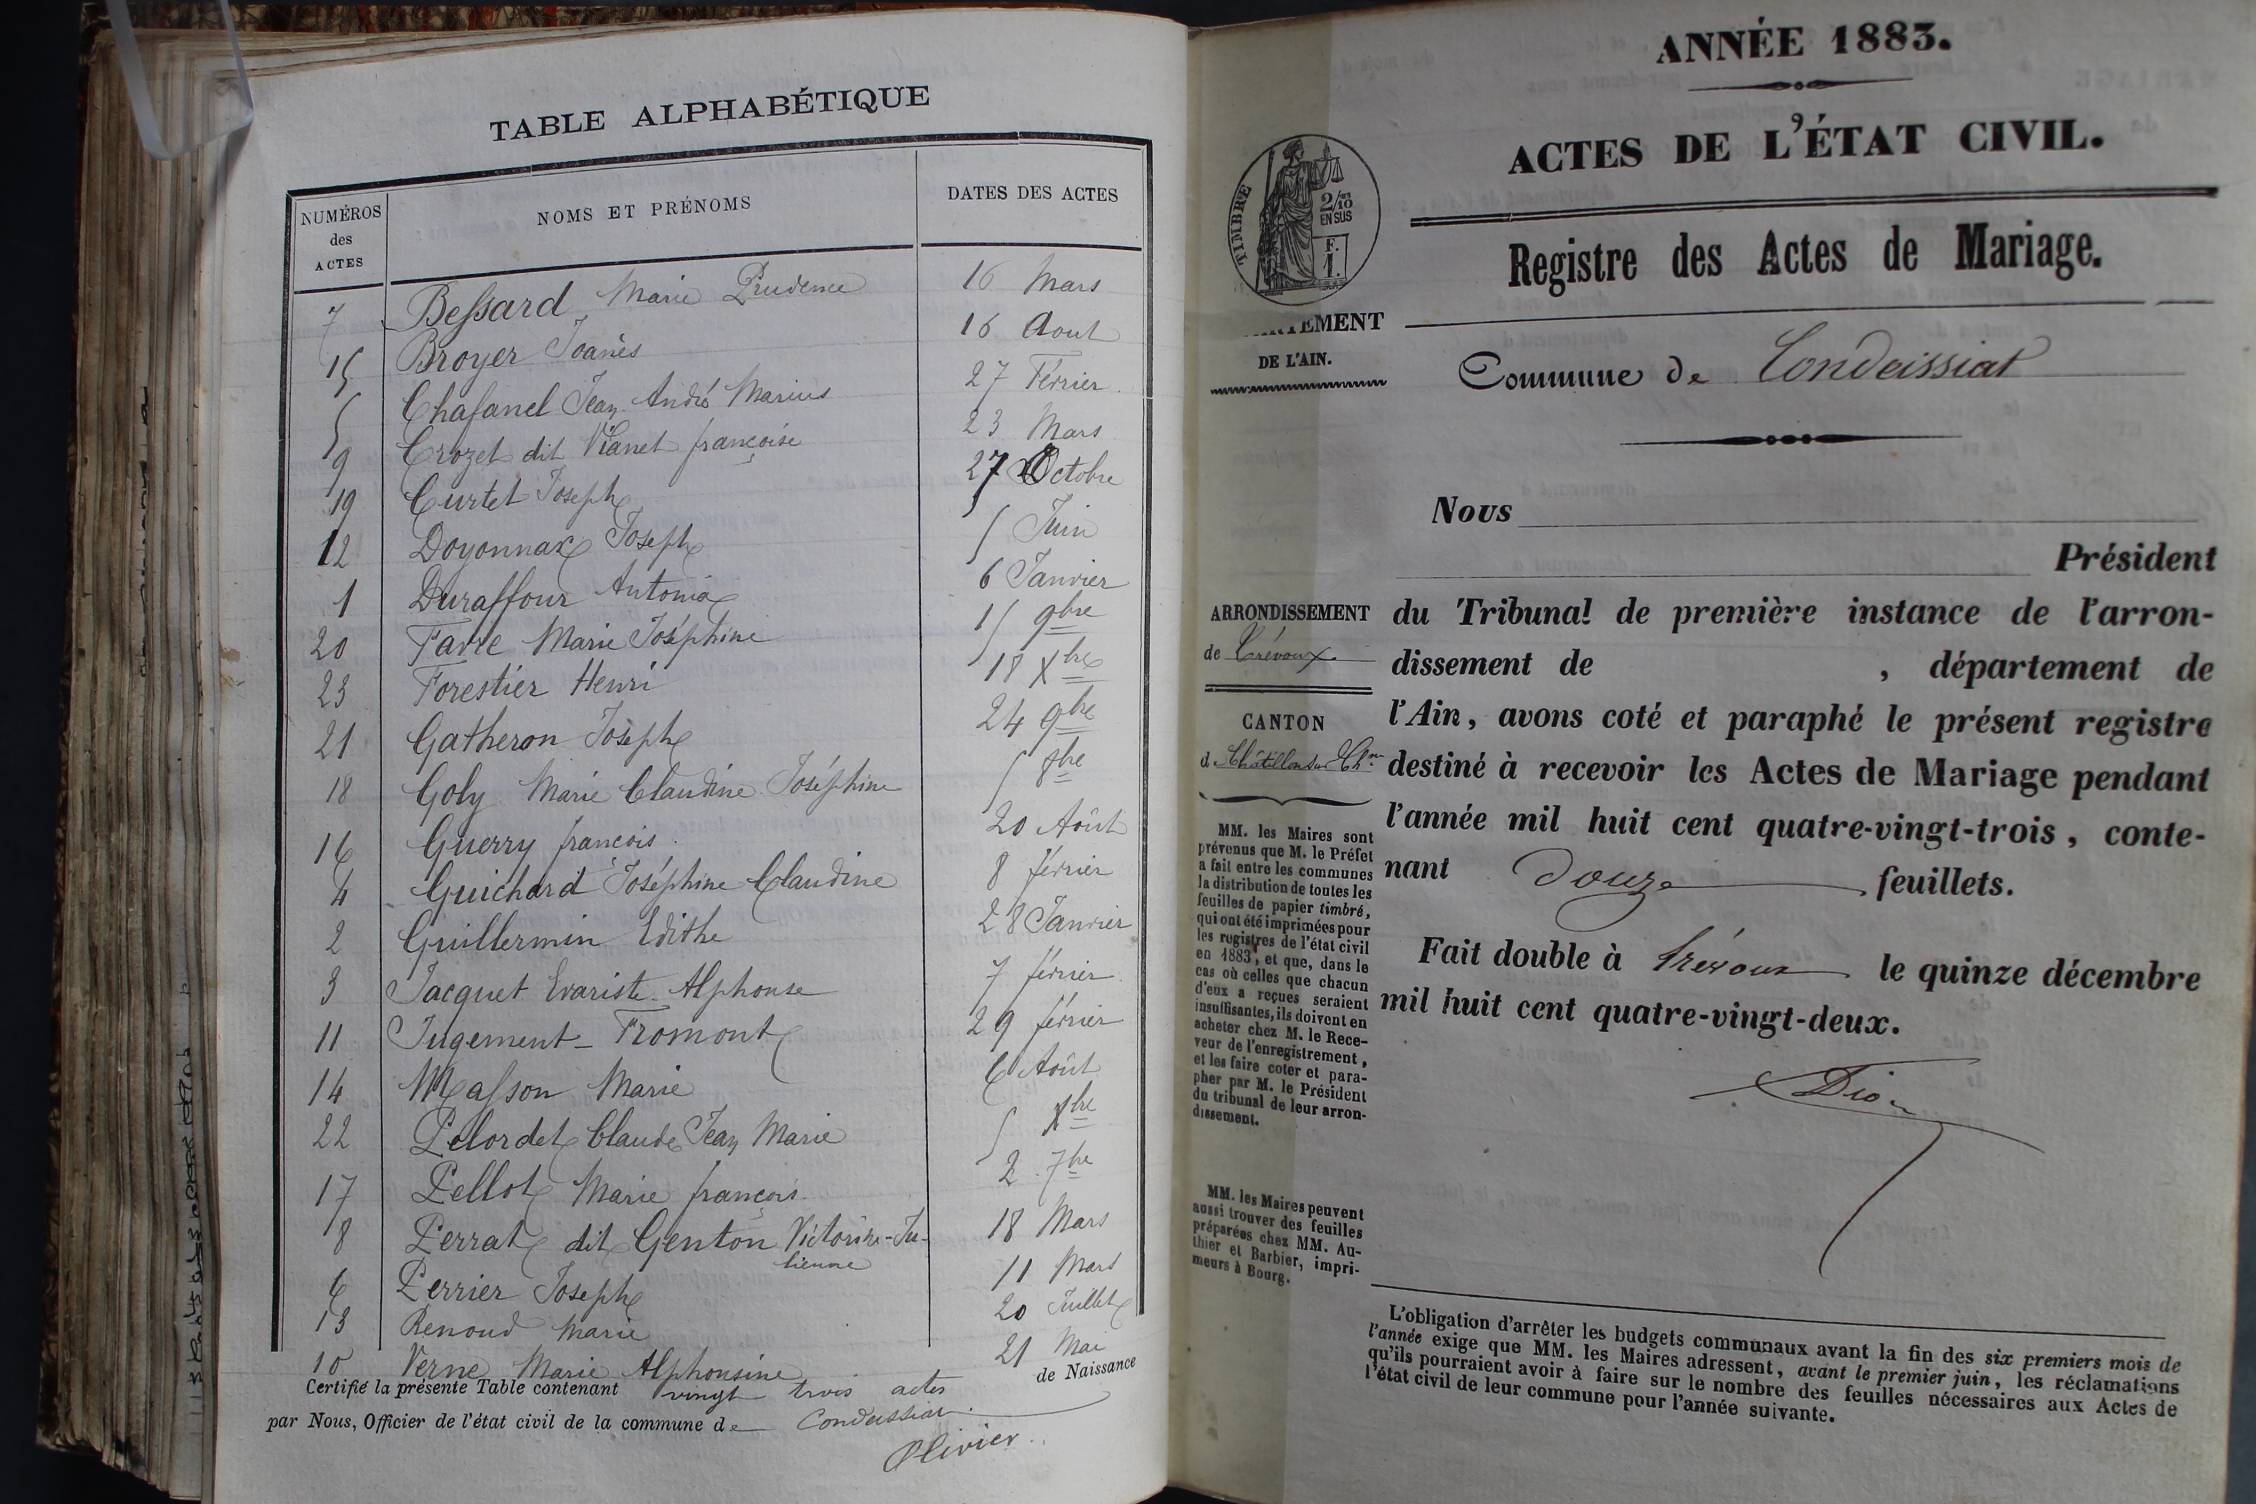 TABLE ALPHABÉTIQUE
NUMÉROS des ACTES NOMS ET PRÉNOMS DATES DES ACTES
7 Bessard Marie Prudence 16 Mars
15 Broyer Joanès 16 Aout
5 Chasanel Jean André Marius 27 Février
9 Crozet dit Vianet françoise 23 Mars
19 Curtet Joseph 27 Octobre
12 Doyonnax Joseph 5 Juin
1 Duraffour Antonia 6 Janvier
20 Favre Marie Joséphine 15 9bre
23 Forestier Henri 18 Xbre
21 Gatheron Joseph 24 9bre
18 Goly Marie Claudine Joséphine 5 8bre
16 Guerry françois 20 Août
4 Guichard Joséphine Claudine 8 février
2 Guillermin Edithe 28 Janvier
3 Jacquet Evariste Alphonse 7 février
11 Jugement - Fromont 29 février
14 Masson Marie 6 Août
22 Pelordet Claude Jean Marie 5 Xbre
17 Pellot Marie françois 2 7bre
8 Perrat dit Genton Victorine-Ju-
lienne 18 Mars
6 Perrier Joseph 11 Mars
13 Renoud Marie 20 Juillet
10 Verne Marie Alphonsine 21 Mai
Certifié la présente Table contenant vingt trois actes de Naissance
par Nous, Officier de l'état civil de la commune de Condeissiat
Olivier
ANNÉE 1883.
ACTES DE L'ÉTAT CIVIL.
Registre des Actes de Mariage.
TIMBRE
2/10
EN SUS
F.
1.
DE L'AIN.
Commune de Condeissiat
Nous
Président
du Tribunal de première instance de l'arron-
dissement de , département de
l'Ain, avons coté et paraphé le présent registre
destiné à recevoir les Actes de Mariage pendant
l'année mil huit cent quatre-vingt-trois, conte-
nant douze feuillets.
Fait double à Trévoux le quinze décembre
mil huit cent quatre-vingt-deux.
Dion
ARRONDISSEMENT
de Trévoux
CANTON
de Châtillon sur Chne
MM. les Maires sont
prévenus que M. le Préfet
a fait entre les communes
la distribution de toutes les
feuilles de papier timbré,
qui ont été imprimées pour
les registres de l'état civil
en 1883, et que, dans le
cas où celles que chacun
d'eux a reçues seraient
insuffisantes, ils doivent en
acheter chez M. le Rece-
veur de l'enregistrement,
et les faire coter et para-
pher par M. le Président
du tribunal de leur arron-
dissement.
MM. les Maires peuvent
aussi trouver des feuilles
préparées chez MM. Au-
thier et Barbier, impri-
meurs à Bourg.
L'obligation d'arrêter les budgets communaux avant la fin des six premiers mois de
l'année exige que MM. les Maires adressent, avant le premier juin, les réclamations
qu'ils pourraient avoir à faire sur le nombre des feuilles nécessaires aux Actes de
l'état civil de leur commune pour l'année suivante.